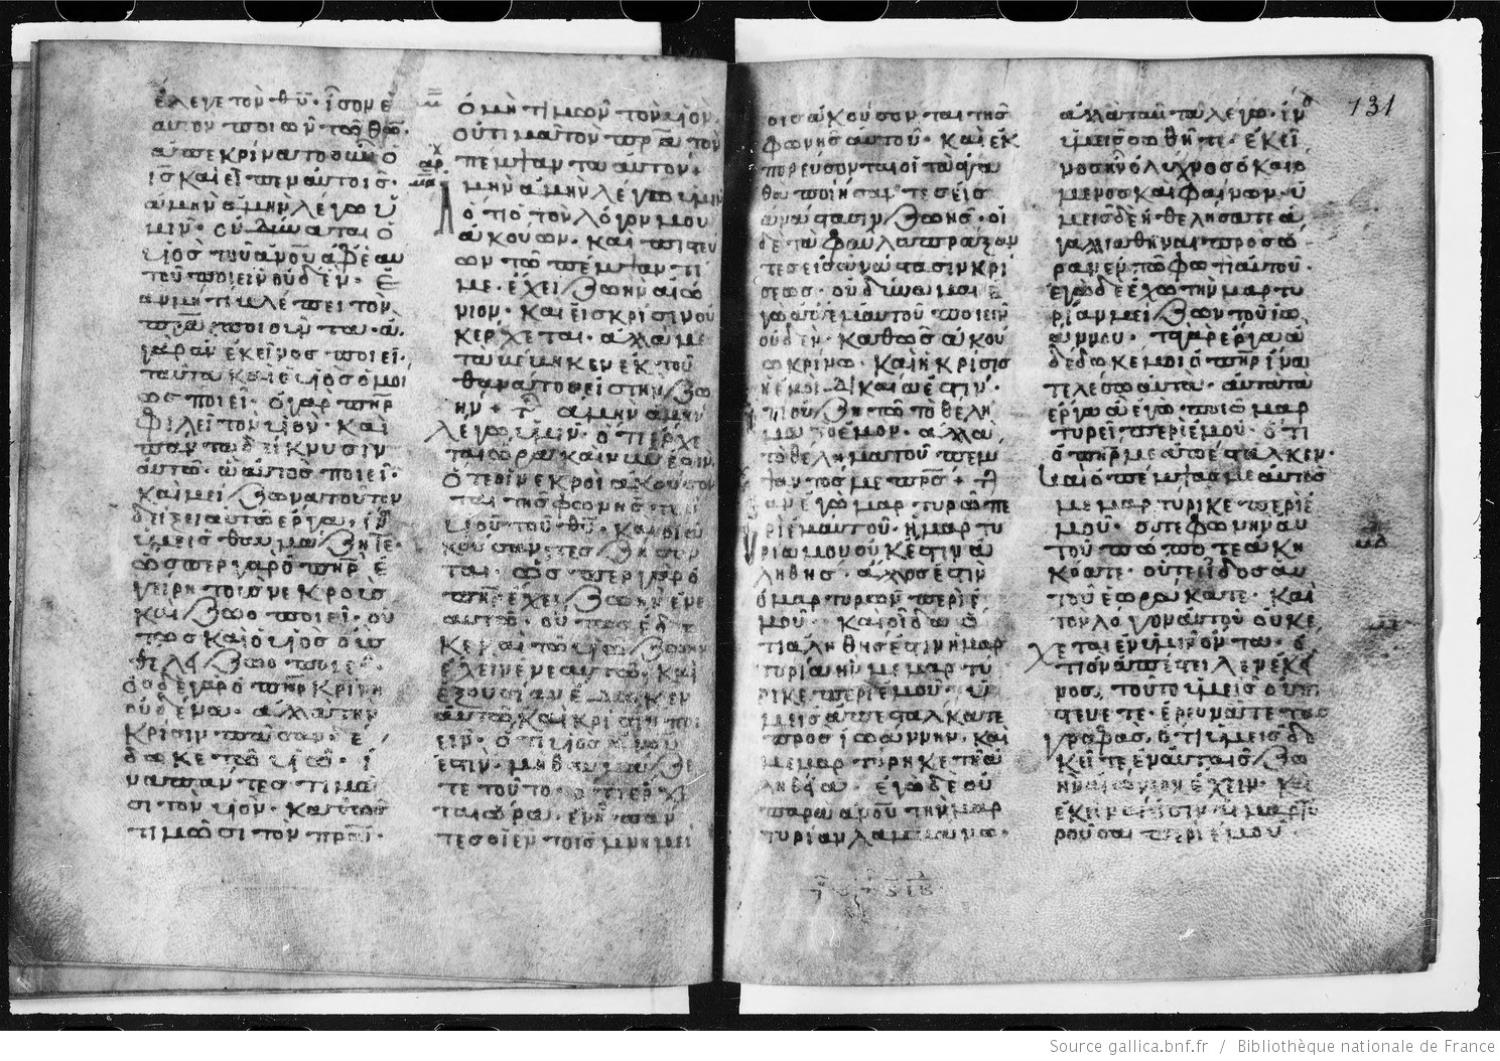 ἔλεγε τὸν θν̄· ἴσον ἑ
αυτὸν ποιῶν τῶ θω̄·
ἀπεκρίνατο οὖν ὁ
ις̄ καὶ εἶπεν αὐτοῖς·
ἀμὴν ἀμὴν λέγω ὑ
μῖν· οὐ δύναται ὁ
υἱὸς τοῦ ἀνου ἀφ' ἑαυ
τοῦ ποιεῖν οὐδέν· ἐ
ὰν μή τι βλέπει τὸν
πρ̄α ποιοῦντα· ἃ
γὰρ ἂν ἐκεῖνος ποιεῖ·
ταῦτα καὶ ὁ υἱὸς ὁμοί
ως ποιεῖ· ὁ γὰρ πη̄ρ
φιλεῖ τὸν υἱὸν· καὶ
πάντα δείκνυσιν
αὐτῶ· ἃ αὐτὸς ποιεῖ·
καὶ μείζωνα τούτων
δείξει αὐτῶ ἔργα· ἵνα
ὑμεῖς θαυμάζητε·
ὥσπερ γὰρ ὁ πηρ ἐ
γείρη τοὺς νεκροὺς
καὶ ζωοποιεῖ· οὕ
τως καὶ ὁ υἱὸς οὓς
θέλει ζωοποιεῖ·
οὐδὲ γὰρ ὁ πηρ κρίνη
οὐδένα· ἀλλὰ τὴν
κρίσιν πᾶσαν· ἔ
δωκε τῶ υἱῶ· ἵ
να πάντες τιμῶ
σι τὸν υἱὸν· καθὼς
τιμῶσι τὸν πρα·
ὁ μὴ τιμῶν τὸν υἱὸν·
οὐ τιμᾶ τὸν πρ̄α τὸν
πέμψαντα αὐτόν+
μὴν ἀμὴν λέγω ὑμῖν
ὅτι ὁ τὸν λόγον μου
ἀκούων· καὶ πιστεύ
ων τῶ πέμψαντί
με· ἔχει ζωὴν αἰώ
νιον· καὶ εἰς κρίσιν οὐ
κ ἔρχεται· ἀλλὰ με
ταβέβηκεν ἐκ τοῦ
θανάτου εἰς τὴν ζω
ήν+ ἀμὴν ἀμὴν
λέγω ὑμῖν· ὅτι ἔρχε
ται ὥρα καὶ νῦν ἐστιν
ὅτε οἱ νεκροὶ ἀκούσον
ται τῆς φωνῆς τοῦ
υἱοῦ τοῦ θῡ· καὶ οἱ ἀ
κούσαντες ζήσον
ται· ὥσπερ γὰρ ὁ
πηρ ἔχει ζωὴν ἐν ἑ
αυτῶ· οὕτως ἔδω
κεν καὶ τῶ υἱῶ ζωὴν
ἔχειν ἐν ἑαυτῶ· καὶ
ἐξουσίαν ἔδωκεν
αὐτῶ καὶ κρίσιν ποι
εῖν· ὅτι υἱὸς ἀνου
ἐστιν· μὴ θαυμάζε
τε τοῦτο· ὅτι ἔρχε
ται ὥρα· ἐν ἧ πάν
τες οἱ ἐν τοῖς μνημεί
131
οις ἀκούσονται τῆς
φωνῆς αὐτοῦ· καὶ ἐκ
πορεύσονται οἱ τὰ ἀγα
θὰ ποιήσαντες εἰς
ἀνάστασιν ζωῆς· οἱ
δὲ τὰ φαῦλα πράξαν
τες εἰς ἀνάστασιν κρί
σεως· οὐ δύναμαι ἐ
γὼ ἀπ' ἐμαυτοῦ ποιεῖν
οὐδέν· καθὼς ἀκού
ω κρίνω· καὶ ἡ κρίσις
ἡ ἐμοὶ δικαία ἐστίν·
ὅτι οὐ ζητῶ τὸ θέλη
μα τὸ ἐμὸν· ἀλλὰ
τὸ θέλημα τοῦ πέμ
ψαντός με πρς+
ὰν ἐγὼ μαρτυρῶ πε
ρὶ ἐμαυτοῦ· ἡ μαρτυ
ρία μου οὐκ ἔστιν ἀ
ληθής· ἄλλος ἐστὶν
ὁ μαρτυρῶν περὶ ἐ
μοῦ· καὶ οἶδα ὅ
τι ἀληθής ἐστιν ἡ μαρ
τυρία ἣν μεμαρτύ
ρικε περὶ ἐμοῦ· ὑ
μεῖς ἀπεστάλκατε
πρὸς ἰωάννην· καὶ
μεμαρτύρηκε τῆ ἀ
ληθεία· ἐγὼ δὲ οὐ
παρὰ ἀνου τὴν μαρ
τυρίαν λαμβάνω·
ἀλλὰ ταῦτα λέγω· ἵνα
ὑμεῖς σωθῆτε· ἐκεῖ
νος ἦν ὁ λύχνος ὁ καιό
μενος καὶ φαίνων· ὑ
μεῖς δὲ ἠθελήσατε ἀ
γαλλιαθῆναι πρὸς ὥ
ραν ἐν τῶ φωτὶ αὐτοῦ·
ἐγὼ δὲ ἔχω τὴν μαρτυ
ρίαν μείζων τοῦ ἰω
άννου· τὰ γὰρ ἔργα ἃ
δέδωκέ μοι ὁ πηρ ἵνα
τελέσω αὐτὰ· αὐτὰ τὰ
ἔργα ἃ ἐγὼ ποιῶ μαρ
τυρεῖ περὶ ἐμοῦ· ὅτι
ὁ πηρ με ἀπέσταλκεν·
καὶ ὁ πέμψας με αὐτὸς
μεμαρτύρικε περὶ ἐ
μοῦ· οὔτε φωνὴν αὐ
τοῦ πώποτε ἀκη
κόατε· οὔτε εἶδος αὐ
τοῦ ἑωράκατε· καὶ
τὸν λόγον αὐτοῦ οὐκ ἔ
χετε ἐν ὑμῖν ὄντα· ὅ
τι ὃν ἀπέστειλεν ἐκεῖ
νος, τοῦτο ὑμεῖς οὐ πι
στεύετε· ἐρευνᾶτε τὰς
γραφάς, ὅτι ὑμεῖς δο
κεῖτε ἐν αὐταῖς ζω
ὴν αἰώνιον ἔχειν· καὶ
ἐκεῖναί εἰσιν αἱ μαρτυ
ροῦσαι περὶ ἐμοῦ·
Source gallica.bnf.fr / Bibliothèque nationale de France